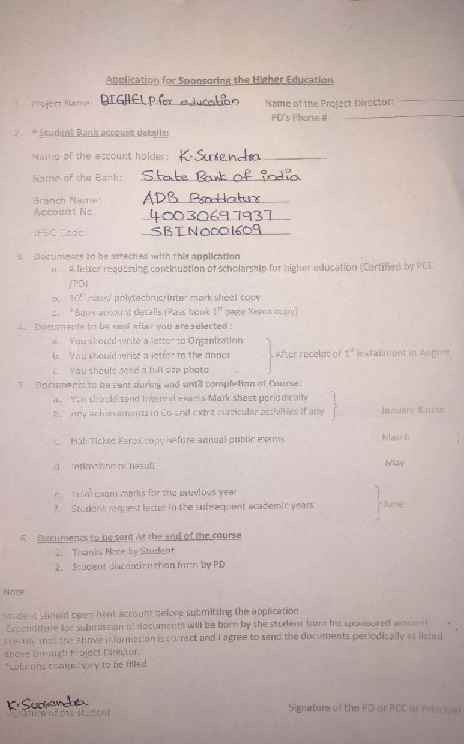 Application for Sponsoring the Higher Education
1. Project Name: BIGHELP for education Name of the Project Director:
PD's Phone #
2. * Student Bank account details:
Name of the account holder: K. Surendra
Name of the Bank: State Bank of india
Branch Name: ADB
Account No. 40030697937
IFSC Code: SBIN0001609
3. Documents to be attached with this application
a. A letter requesting continuation of scholarship for higher education (Certified by PCC
/PD)
b. 10th class/ polytechnic/Inter mark sheet copy
c. *Bank account details (Pass book 1st page Xerox copy)
4. Documents to be sent after you are selected :
a. You should write a letter to Organization
b. You should write a letter to the donor After receipt of 1st installment in August
c. You should send a full size photo
5. Documents to be sent during and until completion of Course:
a. You should send Internal exams Mark sheet periodically
b. Any achievements in Co and extra curricular activities if any January &June
c. Hall Ticket Xerox copy before annual public exams March
d. Intimation of Result May
e. Final exam marks for the previous year
f. Student request letter in the subsequent academic years June
6. Documents to be sent At the end of the course
1. Thanks Note by Student
2. Student discontinuation form by PD
Note:
Student should open bank account before submitting the application
Expenditure for submission of documents will be born by the student from his sponsored amount
I certify that the above information is correct and I agree to send the documents periodically as listed
above through Project Director.
*columns compulsory to be filled
K. Surendra
Signature of the student Signature of the PD or PCC or Principal